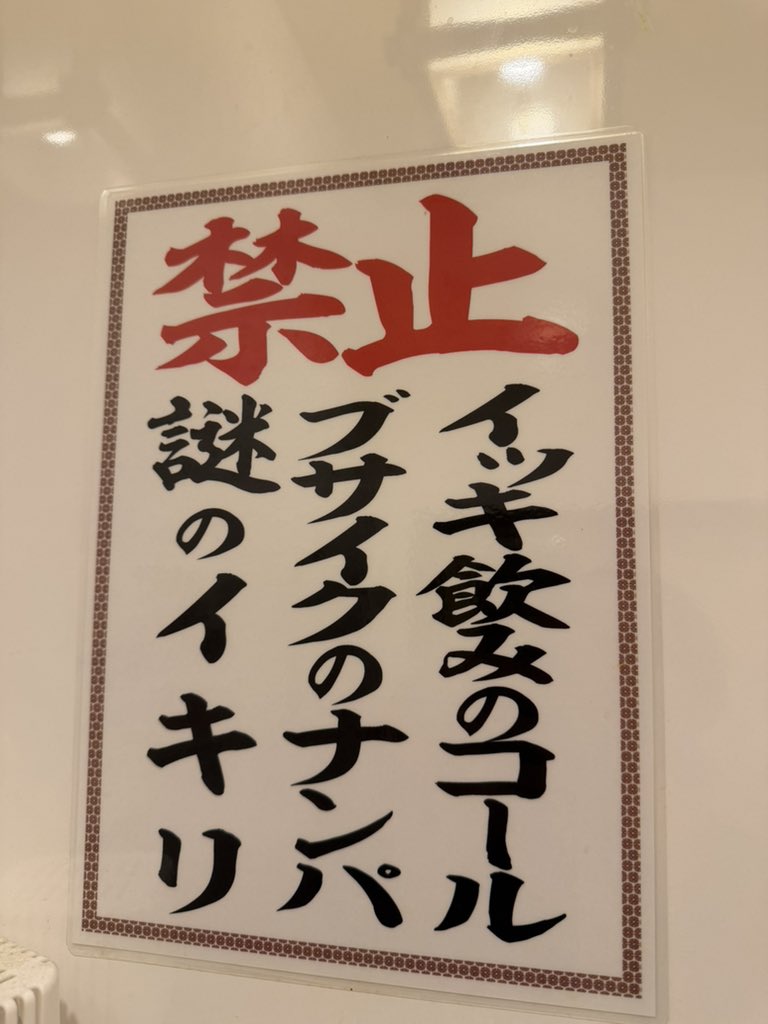 禁止
イッキ飲みのコール
ブサイクのナンパ
謎のイキリ